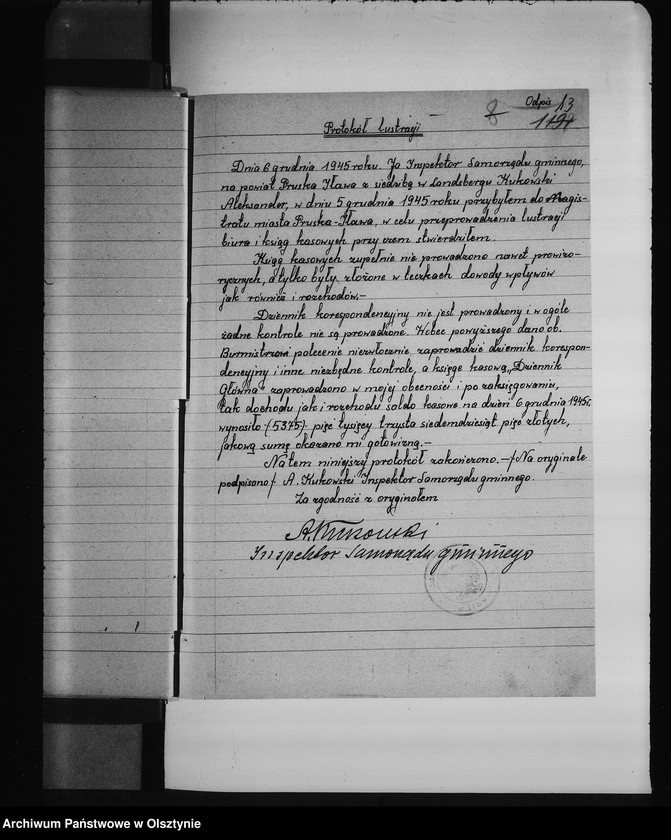 8 Odpis 13
1198
Protokół lustracji
Dnia 6 grudnia 1945 roku. Ja Inspektor Samorządu gminnego,
na powiat Pruska Iława z siedzibą w Landsbergu Kukowski
Aleksander, w dniu 5 grudnia 1945 roku przybyłem do Magis-
tratu miasta Pruska-Iława, w celu przeprowadzenia lustracji
biura i ksiąg kasowych przy czem stwierdziłem.
Ksiąg kasowych zupełnie nie prowadzono nawet prowizo-
rycznych, a tylko były złożone w teczkach dowody wpływów
jak również i rozchodów.-
Dziennik korespondencyjny nie jest prowadzony i w ogóle
żadne kontrole nie są prowadzone. Wobec powyższego dano ob.
Burmistrzowi polecenie niezwłocznie zaprowadzić dziennik korespon-
dencyjny i inne niezbędne kontrole, a księgę kasową "Dziennik
Główna" zaprowadzono w mojej obecności i po zaksięgowaniu,
tak dochodu jak i rozchodu saldo kasowe na dzień 6 grudnia 1945 r.
wynosiło (5375) pięć tysięcy trzysta siedemdziesiąt pięć złotych,
jakową sumę okazano mi gotowizną.-
Na tem niniejszy protokół zakończono. -/- Na oryginale
podpisano/. A. Kukowski Inspektor Samorządu gminnego.
Za zgodność z oryginałem
A. Kukowski
Inspektor Samorządu gminnego
Archiwum Państwowe w Olsztynie